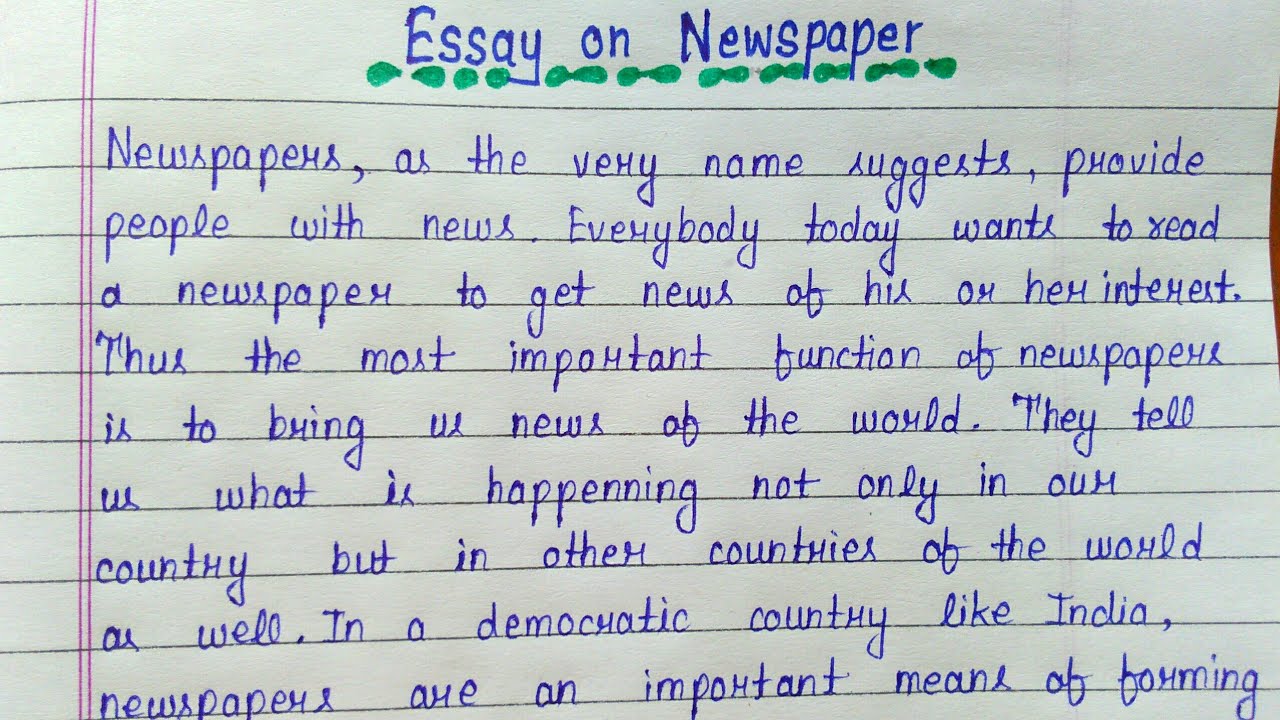 Essay on Newspaper
Newspapers, as the very name suggests, provide
people with news. Everybody today wants to read
a newspaper to get news of his or her interest.
Thus the most important function of newspapers
is to bring us news of the world. They tell
us what is happenning not only in our
country but in other countries of the world
as well. In a democratic country like India,
newspapers are an important means of forming